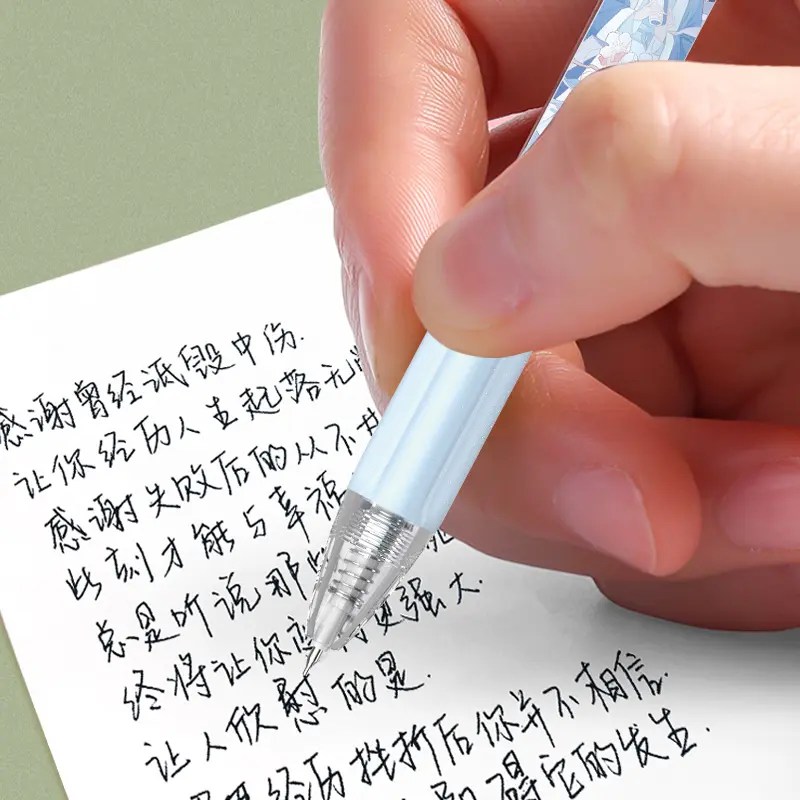 感谢曾经诋毁中伤.
让你经历人生起落无
感谢失败后的从不
此刻才能与幸福
总是听说那些
终将让你 更强大.
让人欣慰的是.
经历挫折后你并不相信.
得它的发生.